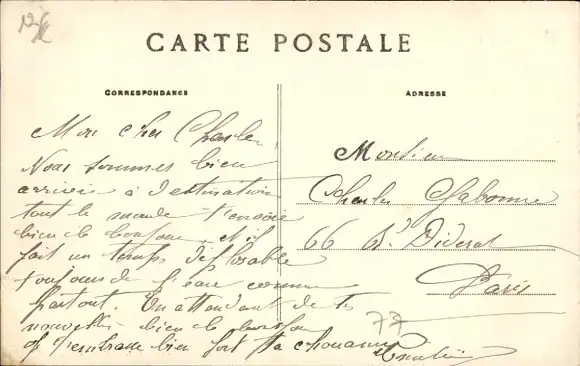 CARTE POSTALE
CORRESPONDANCE
ADRESSE
Mon cher Charles
Nous sommes bien
arrivés à destination
tout le monde t'envoie
bien le bonjour et il
fait un temps déplorable
toujours de l'eau comme
partout. En attendant de tes
nouvelles bien le bonjour
et t'embrasse bien fort ta
Monsieur
Charles
66 Bd Diderot
Paris
77